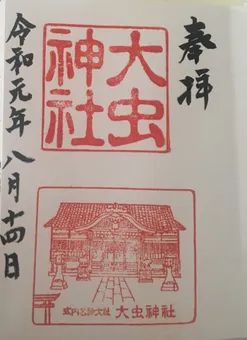 奉拝
大虫
神社
令和元年八月十四日
式内名神大社 大虫神社